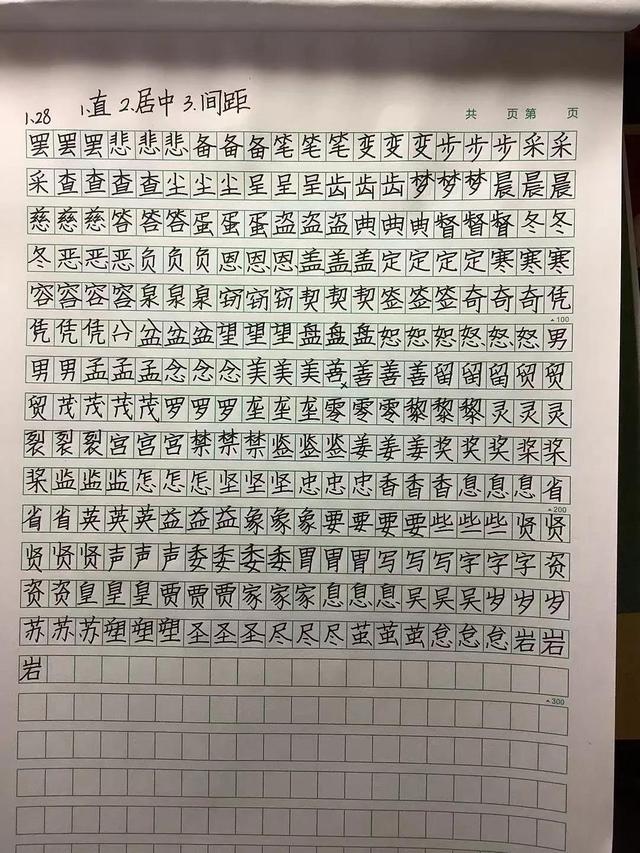 1.28 1.直 2.居中 3.间距
共 页 第 页
罢罢罢悲悲悲备备备笔笔笔变变变步步步采采
采查查查查尘尘尘呈呈呈齿齿齿梦梦梦晨晨晨
慈慈慈答答答蛋蛋蛋盗盗盗典典典督督督冬冬
冬恶恶恶负负负恩恩恩盖盖盖定定定定寒寒寒
容容容容泉泉泉窃窃窃契契契签签签奇奇奇凭
▲100
凭凭凭分盆盆盆望望望盘盘盘恕恕恕怒怒怒男
男男孟孟孟念念念美美美善善善善留留留贸贸
贸茂茂茂茂罗罗罗垄垄垄零零零黎黎黎灵灵灵
裂裂裂宫宫宫禁禁禁监监监姜姜姜奖奖奖桨桨
桨监监监怎怎怎坚坚坚忠忠忠香香香息息息省
▲200
省省英英英益益益象象象要要要要些些些贤贤
贤贤贤声声声委委委委胃胃胃写写写字字字资
资资皇皇皇贾贾贾家家家息息息吴吴吴岁岁岁
苏苏苏塑塑塑圣圣圣尽尽尽茧茧茧怠怠怠岩岩
岩
▲300